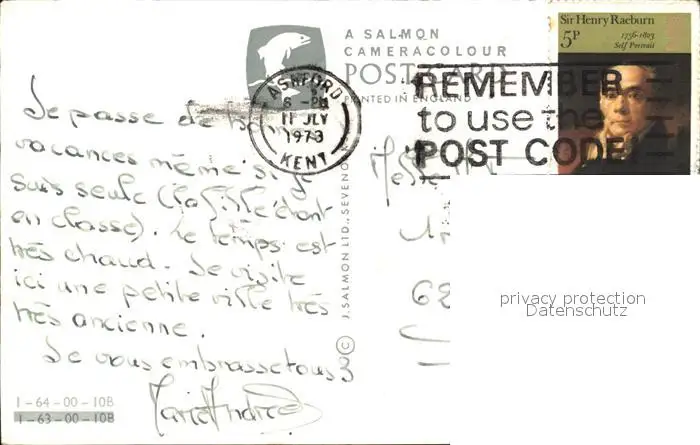 A SALMON
CAMERACOLOUR
POST CARD
PRINTED IN ENGLAND
ASHFORD
6 - PM
11 JLY
1973
KENT
REMEMBER
to use the
POST CODE
Sir Henry Raeburn
5P
1756-1823
Self Portrait
Je passe de bonnes
vacances même si je
suis seule (la fille étant
en classe). Le temps est
très chaud. Je visite
ici une petite ville très
très ancienne.
Je vous embrasse tous 3
Marie Andrée
© J. SALMON LTD., SEVENOAKS
62
privacy protection
Datenschutz
1-64-00-10B
1-63-00-10B